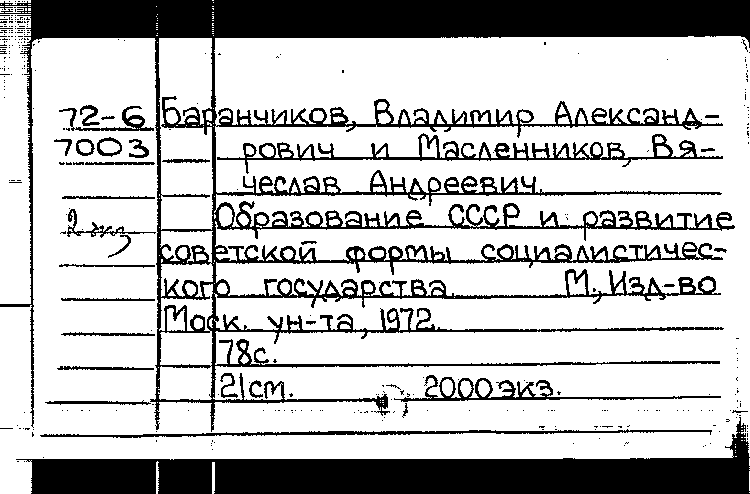 72-6 Баранчиков, Владимир Александ-
7003 рович и Масленников, Вя-
чеслав Андреевич.
2 экз Образование СССР и развитие
советской формы социалистичес-
кого государства. М., Изд-во
Моск. ун-та, 1972.
78с.
21см. 2000 экз.